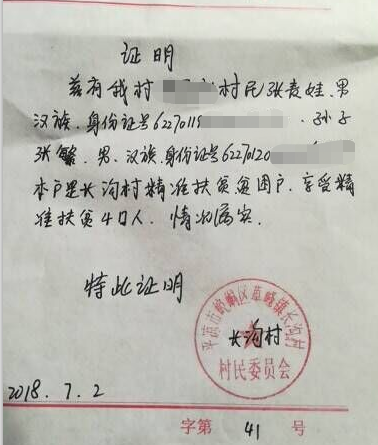 证明
兹有我村 村民张麦娃.男
汉族.身份证号62270119 .孙子
张繁.男.汉族.身份证号62270120
本户是长沟村精准扶贫贫困户.享受精
准扶贫4口人.情况属实.
特此证明
平凉市崆峒区草峰镇长沟村
村民委员会
长沟村
2018.7.2
字第 41 号